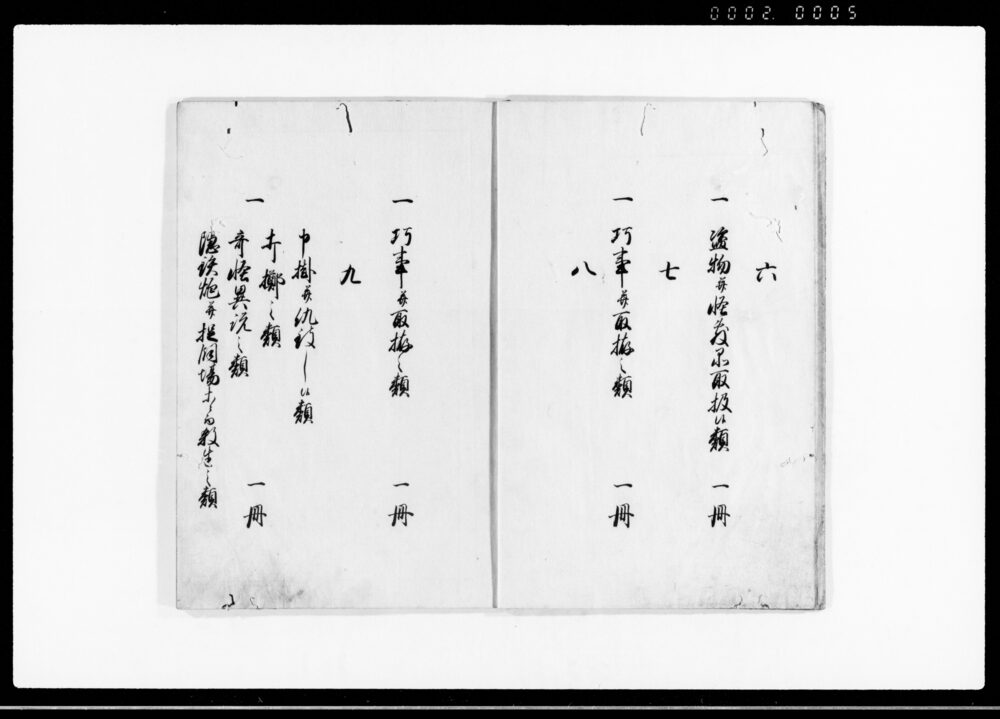 0002. 0005
六
一 盗物并怪敷品取扱候類 一冊
七
一 巧事并取拵之類 一冊
八
一 巧事并取拵之類 一冊
九
巾掛并仇討し候類
一 奇怪異説之類 一冊
隠鉄炮并捉飼場ニ而殺生之類